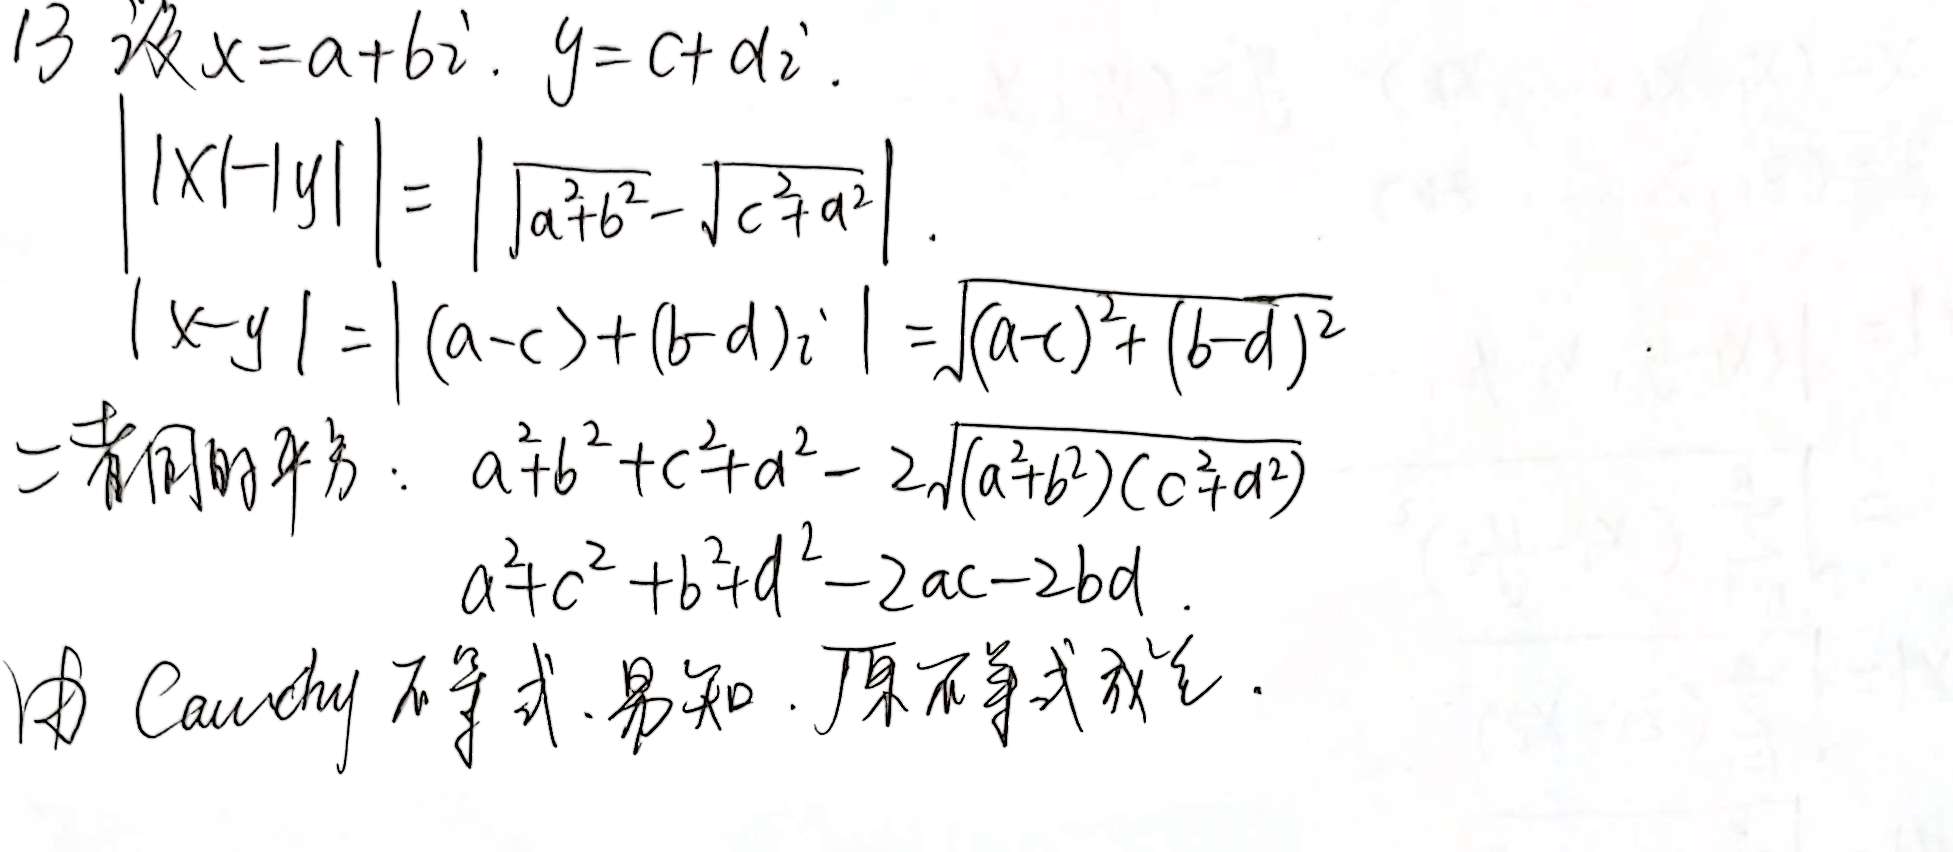 13 设 x=a+bi. y=c+di.
||x|-|y|| = |√(a²+b²) - √(c²+d²)|.
|x-y| = |(a-c)+(b-d)i| = √((a-c)²+(b-d)²)
二者同时平方: a²+b²+c²+d² - 2√((a²+b²)(c²+d²))
a²+c²+b²+d²-2ac-2bd.
由 Cauchy 不等式.易知.原不等式成立.